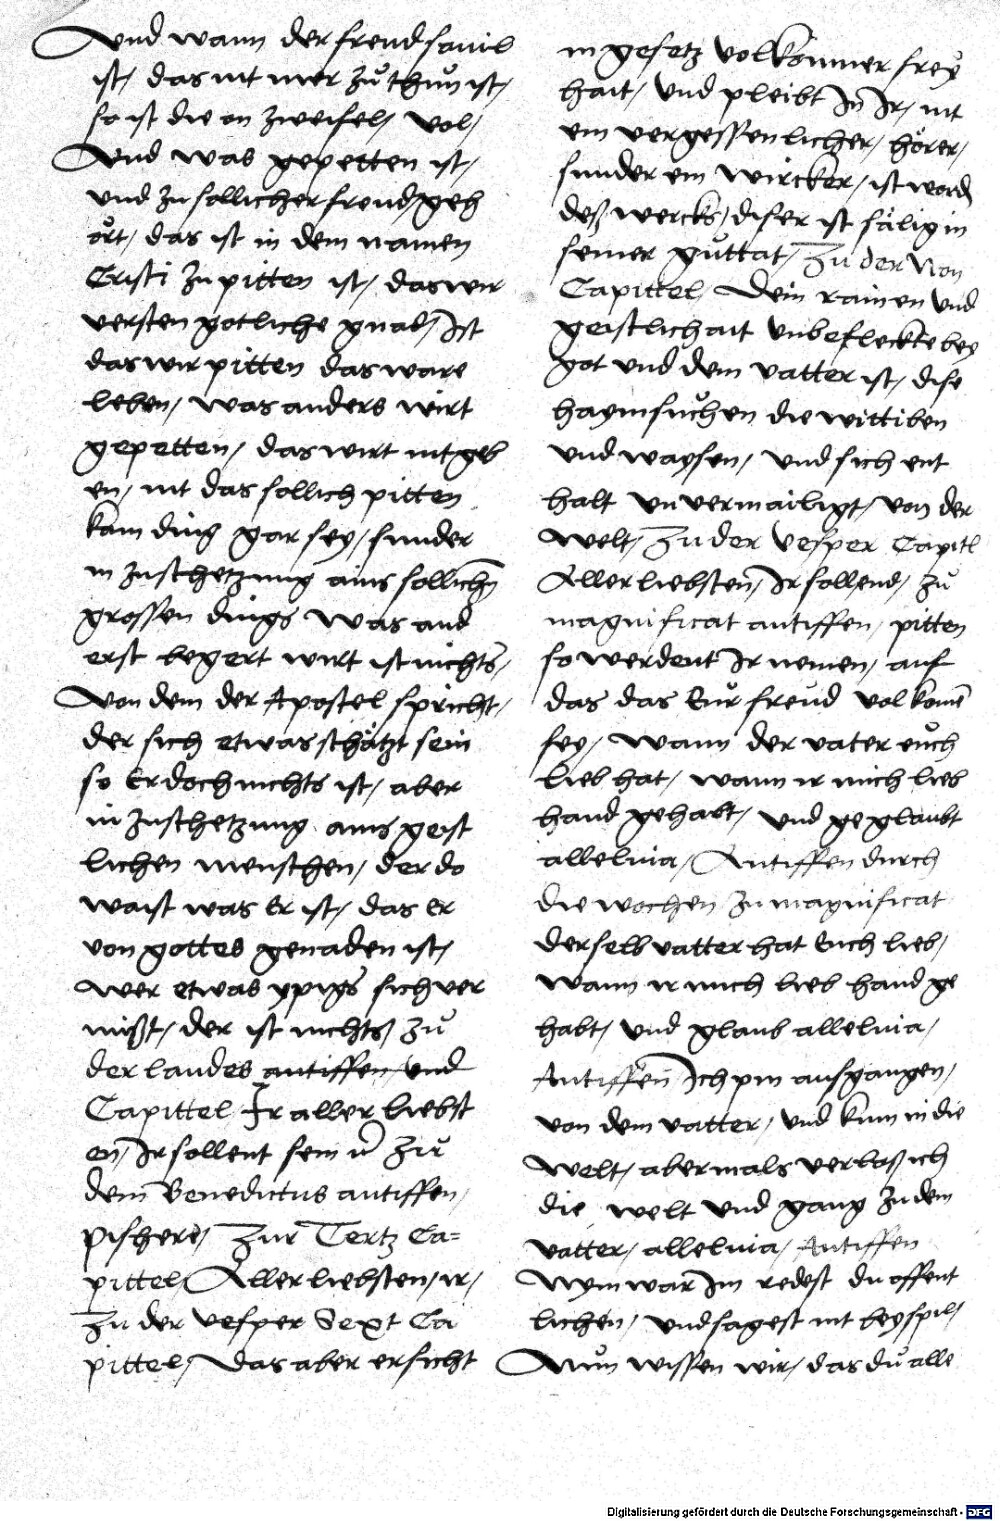 Und wann der freud souil
ist, das nit mer zů thun ist,
so ist die on zweifel, vol,
Und was gepetten ist,
und zu sollicher freud, geh
ört, das ist in dem namen
Cristi zu pitten ist, das wir
versten gotliche gnad, Ist
das wir pitten das ware
leben, was anders wirt
gepetten, das wirt nit geb
en, nit das sollich pitten
kain ding gar sey, sunder
in zuschetzung ains sollichen
grossen dings was and
erst begert wirt ist nichts,
Von dem der Apostel spricht,
der sich etwas schätzt sein
so Er doch nichts ist, aber
in zuschetzung ains geist
lichen menschen, der do
waist was Er ist, das Er
von gottes genaden ist,
wer etwas ypigs sich ver
mißt, der ist nichts, zů
der laudes antiffen, und
Capittel, Ir aller liebst
en, Ir sollent sein zů
dem Benedictus antiffen,
pishere, Zur Tertz Ca=
pittel, Aller liebsten, ir,
Zu der vesper Sext Ca
pittel, Das aber ersicht
in gesetz volkomner frey
hait, und pleibt In Ir, nit
ein vergessenlicher, hörer,
sunder ein wircker, ist word
deß wercks, diser ist sälig in
seiner guttat, Zu der Non
Capittel, Dein rainen und
geistlichait unbefleckte bey
got und dem vatter ist, dise
haymsuchen die wittiben
und waysen, und sich ent
halt unvermailigt, von der
welt, Zu der vesper Capitl
Aller liebsten, Ir sollend, zů
magnificat antiffen, pitten
so werdent Ir nemen, auf
das das Eur freud volkomen
sey, Wann der vater euch
lieb hat, wann ir mich lieb
hand gehabt, und geglaubt
alleluia, Antiffen durch
die wochen zu magnificat
der selb vatter hat Euch lieb,
wann ir mich lieb hand ge
habt, und glaub alleluia,
Antiffen Ich pin ausgangen,
von dem vatter, und kum in die
welt, abermals verlaß ich
die welt und gang zu dem
vatter, alleluia, Antiffen
Nym war Im redest du offent
lichen, und sagest nit beyspil,
Nun wissen wir, das du alle
Digitalisierung gefördert durch die Deutsche Forschungsgemeinschaft - DFG